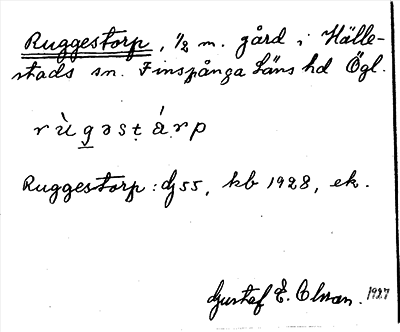 Ruggestorp, 1/2 m. gård i Hälle-
stads sn. Finspånga Läns hd Ögl.
rùgəstárp
Ruggestorp: dj 55, kb 1928, ek.
Gustaf E. Olsson. 1927